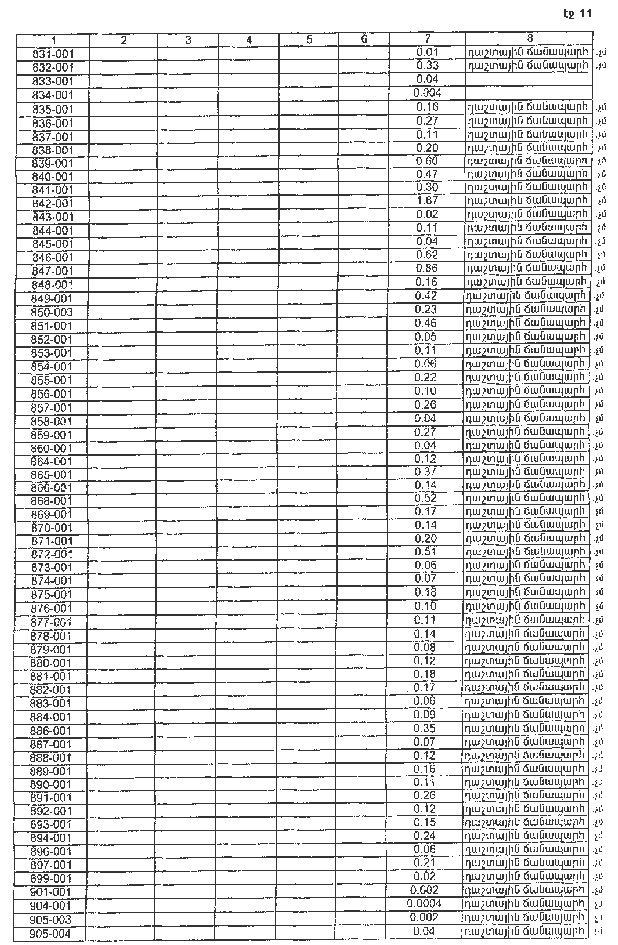 էջ 11
1 2 3 4 5 6 7 8
831-001 0.01 դաշտային ճանապարհ
832-001 0.33 դաշտային ճանապարհ
833-001 0.04
834-001 0.004
835-001 0.16 դաշտային ճանապարհ
836-001 0.27 դաշտային ճանապարհ
837-001 0.11 դաշտային ճանապարհ
838-001 0.20 դաշտային ճանապարհ
839-001 0.60 դաշտային ճանապարհ
840-001 0.47 դաշտային ճանապարհ
841-001 0.30 դաշտային ճանապարհ
842-001 1.67 դաշտային ճանապարհ
843-001 0.02 դաշտային ճանապարհ
844-001 0.11 դաշտային ճանապարհ
845-001 0.04 դաշտային ճանապարհ
846-001 0.62 դաշտային ճանապարհ
847-001 0.86 դաշտային ճանապարհ
848-001 0.16 դաշտային ճանապարհ
849-001 0.42 դաշտային ճանապարհ
850-003 0.23 դաշտային ճանապարհ
851-001 0.46 դաշտային ճանապարհ
852-001 0.05 դաշտային ճանապարհ
853-001 0.11 դաշտային ճանապարհ
854-001 0.06 դաշտային ճանապարհ
855-001 0.22 դաշտային ճանապարհ
856-001 0.10 դաշտային ճանապարհ
857-001 0.26 դաշտային ճանապարհ
858-001 0.04 դաշտային ճանապարհ
859-001 0.27 դաշտային ճանապարհ
860-001 0.04 դաշտային ճանապարհ
864-001 0.12 դաշտային ճանապարհ
865-001 0.37 դաշտային ճանապարհ
866-001 0.14 դաշտային ճանապարհ
868-001 0.52 դաշտային ճանապարհ
869-001 0.17 դաշտային ճանապարհ
870-001 0.14 դաշտային ճանապարհ
871-001 0.20 դաշտային ճանապարհ
872-001 0.51 դաշտային ճանապարհ
873-001 0.06 դաշտային ճանապարհ
874-001 0.07 դաշտային ճանապարհ
875-001 0.18 դաշտային ճանապարհ
876-001 0.10 դաշտային ճանապարհ
877-001 0.11 դաշտային ճանապարհ
878-001 0.14 դաշտային ճանապարհ
879-001 0.08 դաշտային ճանապարհ
880-001 0.12 դաշտային ճանապարհ
881-001 0.18 դաշտային ճանապարհ
882-001 0.17 դաշտային ճանապարհ
883-001 0.06 դաշտային ճանապարհ
884-001 0.09 դաշտային ճանապարհ
886-001 0.35 դաշտային ճանապարհ
887-001 0.07 դաշտային ճանապարհ
888-001 0.12 դաշտային ճանապարհ
889-001 0.16 դաշտային ճանապարհ
890-001 0.11 դաշտային ճանապարհ
891-001 0.26 դաշտային ճանապարհ
892-001 0.12 դաշտային ճանապարհ
893-001 0.15 դաշտային ճանապարհ
894-001 0.24 դաշտային ճանապարհ
896-001 0.06 դաշտային ճանապարհ
897-001 0.21 դաշտային ճանապարհ
899-001 0.02 դաշտային ճանապարհ
901-001 0.002 դաշտային ճանապարհ
904-001 0.0004 դաշտային ճանապարհ
905-003 0.002 դաշտային ճանապարհ
905-004 0.04 դաշտային ճանապարհ